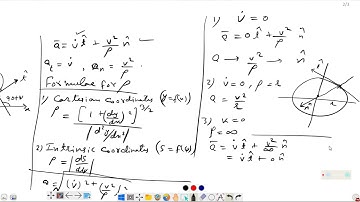 2/3
ā = v̇ t̂ + v²/ρ n̂
a_t = v̇, a_n = v²/ρ
Formulae for ρ
1) Cartesian coordinates (y=f(x))
ρ = [1 + (dy/dx)²]^(3/2) / |d²y/dx²|
2) Intrinsic coordinates (s = f(ψ))
ρ = |ds/dψ|
a = √((v̇)² + (v²/ρ)²)
1) v̇ = 0
ā = 0 t̂ + v²/ρ n̂
ā → v²/ρ n̂
2) v̇ = 0, ρ = r
a = v²/r
3) κ = 0
ρ = ∞
ā = v̇ t̂ + v²/∞ n̂
= v̇ t̂ + 0 n̂
t̂
n̂
r
t̂
x